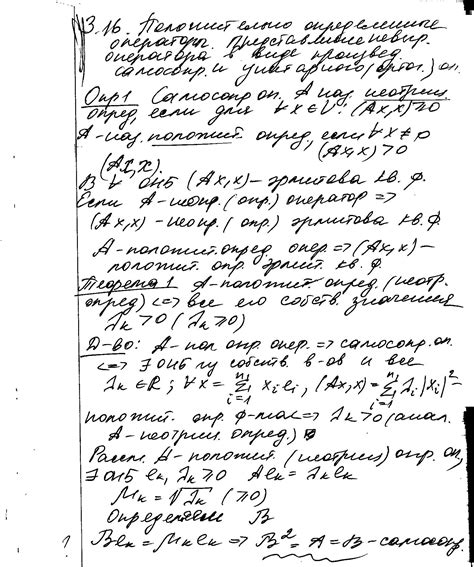 3.16. Положительно определенные
операторы. Представление невыр.
оператора в виде произвед.
самосопр. и унитарного (ортог.) оп.
Опр1 Самосопр оп. A наз. неотриц.
опред, если для ∀x∈V: (Ax,x)≥0
A-наз. положит. опред, если ∀x≠0
(Ax,x)>0
(Ax,x).
В ∀ ОНБ (Ax,x)-эрмитова кв. ф.
Если A-неотр. (опр.) оператор =>
(Ax,x)-неотр. (опр.) эрмитова кв. ф.
A-положит. опред опер. => (Ax,x)-
положит. опр. эрмит. кв. ф.
Теорема 1 A-положит опред. (неотр.
опред) <=> все его собств. значения
λk>0 (λk≥0)
Д-во: A-пол опр. опер. => самосопр. оп.
<=> ∃ ОНБ из собств. в-ов и все
λk∈R; ∀x=∑ i=1 n xi ei, (Ax,x)=∑ i=1 n λi|xi|²-
положит. опр. ф-ма <=> λk>0 (анал.
A-неотриц. опред.)
Рассм. A-положит. (неотриц) опр. оп,
∃ ОНБ ek, λk≥0 Aek=λkek
μk=√λk (≥0)
Определяем B
Bek=μkek => B²=A => B-самосопр.
1